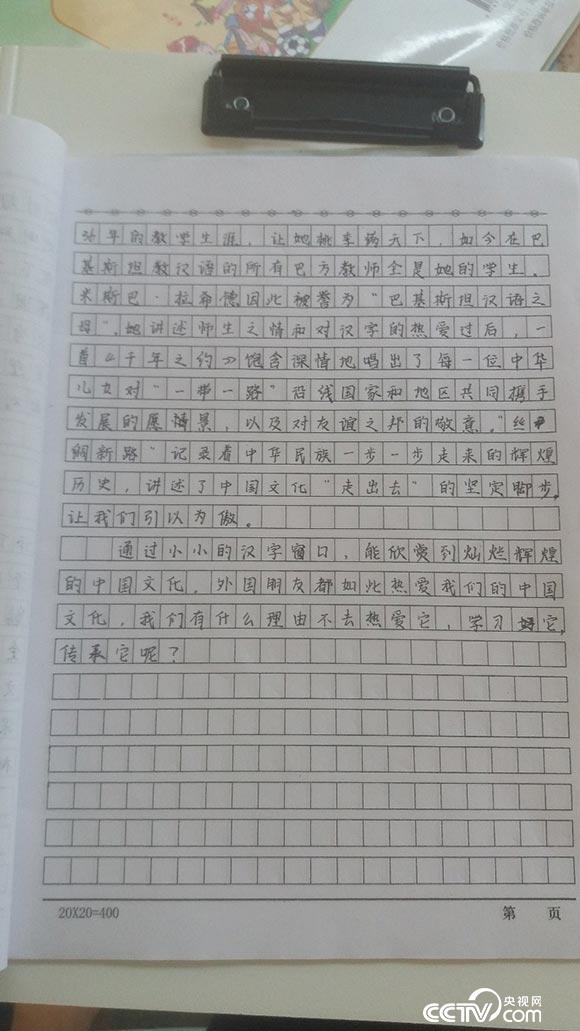 36年的教学生涯，让她桃李满天下，如今在巴
基斯坦教汉语的所有巴方教师全是她的学生。
米斯巴·拉希德因此被誉为“巴基斯坦汉语之
母”。她讲述师生之情和对汉字的热爱过后，一
首《千年之约》饱含深情地唱出了每一位中华
儿女对“一带一路”沿线国家和地区共同携手
发展的愿景，以及对友谊之邦的敬意。“丝
绸新路”记录着中华民族一步一步走来的辉煌
历史，讲述了中国文化“走出去”的坚定脚步，
让我们引以为傲。
通过小小的汉字窗口，能欣赏到灿烂辉煌
的中国文化。外国朋友都如此热爱我们的中国
文化，我们有什么理由不去热爱它，学习好它，
传承它呢？
20X20=400
第 页
CCTV.com 央视网